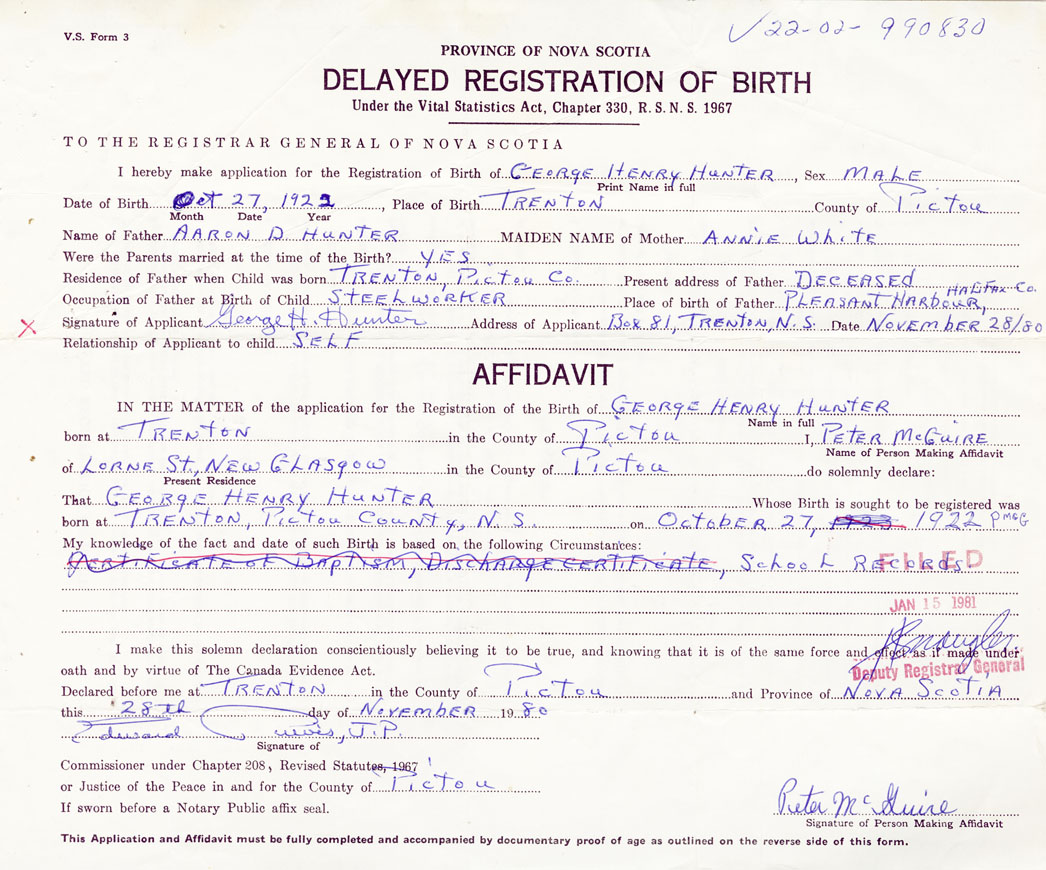 V.S. Form 3
✓ 22-02-990830
PROVINCE OF NOVA SCOTIA
DELAYED REGISTRATION OF BIRTH
Under the Vital Statistics Act, Chapter 330, R.S.N.S. 1967
TO THE REGISTRAR GENERAL OF NOVA SCOTIA
I hereby make application for the Registration of Birth of GEORGE HENRY HUNTER, Sex MALE
Print Name in full
Date of Birth Oct 27, 1922, Place of Birth TRENTON County of Pictou
Month Date Year
Name of Father AARON D HUNTER MAIDEN NAME of Mother ANNIE White
Were the Parents married at the time of the Birth? YES
Residence of Father when Child was born TRENTON, Pictou Co. Present address of Father DECEASED
Occupation of Father at Birth of Child STEELWORKER Place of birth of Father PLEASANT HARBOUR, HALIFAX Co.
X Signature of Applicant George H. Hunter Address of Applicant Box 81, TRENTON, N.S. Date NOVEMBER 28/80
Relationship of Applicant to child SELF
AFFIDAVIT
IN THE MATTER of the application for the Registration of the Birth of GEORGE HENRY HUNTER
Name in full
born at TRENTON in the County of Pictou I, PETER McGUIRE
Name of Person Making Affidavit
of LORNE St., NEW GLASGOW in the County of Pictou do solemnly declare:
Present Residence
That GEORGE HENRY HUNTER Whose Birth is sought to be registered was
born at TRENTON, Pictou County, N.S. on October 27, 1923 1922 PMcG
My knowledge of the fact and date of such Birth is based on the following Circumstances:
Certificate of Baptism, Discharge Certificate, School Records.
FILED
JAN 15 1981
I make this solemn declaration conscientiously believing it to be true, and knowing that it is of the same force and effect as if made under
oath and by virtue of The Canada Evidence Act.
Deputy Registrar General
Declared before me at TRENTON in the County of Pictou and Province of NOVA SCOTIA
this 28th day of NOVEMBER 1980
Edward J.P.
Signature of
Commissioner under Chapter 208, Revised Statutes, 1967
or Justice of the Peace in and for the County of Pictou
If sworn before a Notary Public affix seal.
Peter McGuire
Signature of Person Making Affidavit
This Application and Affidavit must be fully completed and accompanied by documentary proof of age as outlined on the reverse side of this form.